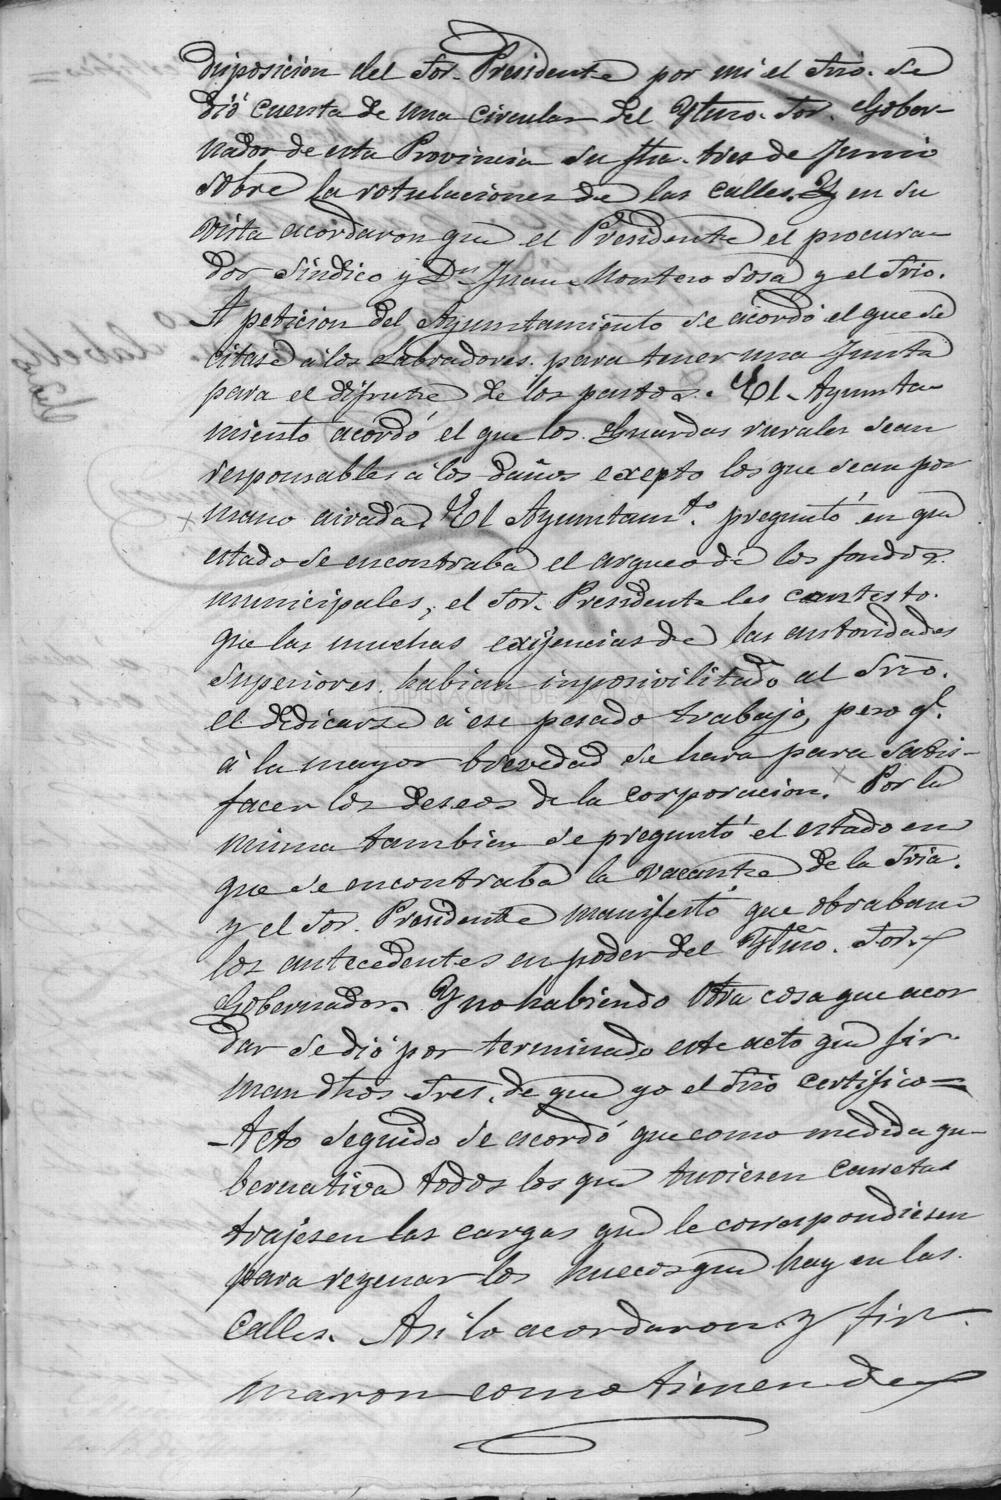 disposicion del Sor. Presidente por mi el Srio. se
dió cuenta de una circular del Yltmo. Sor. Gober-
nador de esta Provincia su fha. tres de Junio
sobre la rotulaciones de las calles. Y en su
vista acordaron que el Presidente el procura-
dor Sindico y Dn. Juan Montero Sosa y el Srio.
A peticion del Ayuntamiento se acordó el que se
citase á los Labradores para tener una Junta
para el difrute de los pastos. El Ayunta-
miento acordó el que los Guardas rurales sean
responsables á los daños exepto los que sean por
mano airada. El Ayuntamto. preguntó en que
estado se encontraba el arqueo de los fondos
municipales, el Sor. Presidente les contesto.
que las muchas exijencias de las autoridades
Superiores habian inposivilitado al Srio.
el dedicarse á ese pesado trabajo, pero q.
á la mayor brevedad se hara para satis-
facer los deseos de la corporacion. Por la
misma tambien se preguntó el estado en
que se encontraba la vacante de la Sria.
y el Sor. Presidente manifestó que obraban
los antecedentes en poder del Yltmo. Sor.
Gobernador. Y no habiendo otra cosa que acor
dar se dió por terminado este acto que fir-
man dhos Sres. de que yo el Srio certifico=
Acto seguido se acordó que como medida gu-
bernativa todos los que tuviesen carretas
trajesen las cargas que le correspondiesen
para reyenar los huecos que hay en las
calles. Asi lo acordaron y fir-
maron como tienen de